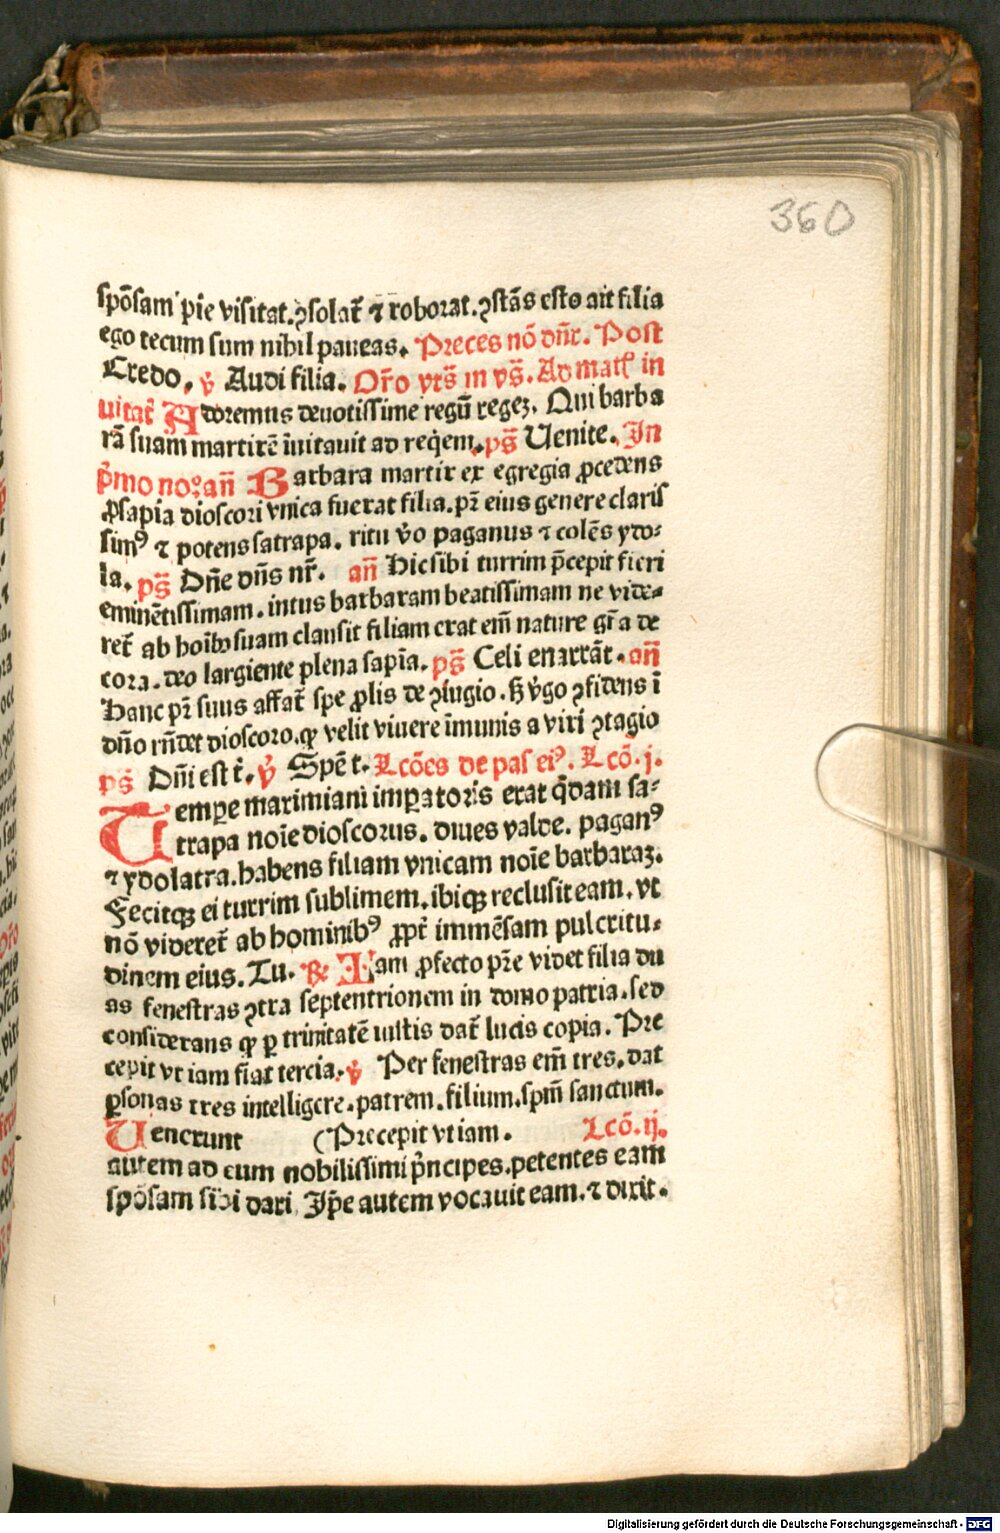 360
spōsam pie visitat.ꝯsolat᷑ ⁊ roborat.ꝯstās esto ait filia
ego tecum sum nihil paueas. Preces nō dn̄r. Post
Credo. ℣ Audi filia. Or̄o vts̄ in vs̄. Ad mat᷑ in
uitat᷑ Adoremus deuotissime regū regeꝫ. Qui barba
rā suam martirē īuitauit ad reqiem. ps̄ Uenite. In
pͥmo noꝛ̄ añ Barbara martir ex egregia ꝓcedens
ꝓsapia dioscori vnica fuerat filia.pr̄ eius genere claris
simꝰ ⁊ potens satrapa. ritu v̊o paganus ⁊ colēs ydo⸗
la. ps̄ Dn̄e dn̄s nr̄. añ Hic sibi turrim p̄cepit fieri
eminētissimam. intus barbaram beatissimam ne vide⸗
ret᷑ ab hoībꝫ suam clausit filiam erat em̄ nature gr̄a de
cora. deo largiente plena sapīa. ps̄ Celi enarrāt. añ
Hanc pr̄ suus affat᷑ spe ꝓlis de ꝯiugio. ẜ v̊go ꝯfidens ī
dn̄o rn̄det dioscoro.ꝙ velit viuere īmunis a viri ꝯtagio
ps̄ Dn̄i est t̄. ℣ Spē t. Lcōes de pas eiꝰ. Lcō.j.
Tempe maximiani imꝑatoris erat qͥdam sa⸗
trapa noīe dioscorus. diues valde. paganꝰ
⁊ ydolatra.habens filiam vnicam noīe barbaraꝫ.
Fecitqꝫ ei turrim sublimem.ibiqꝫ reclusit eam. vt
nō videret᷑ ab hominibꝰ ꝓpt᷑ immēsam pulcritu⸗
dinem eius. Tu. ℟ Iam ꝓfecto pr̄e videt filia du
as fenestras ꝯtra septentrionem in domo patria.sed
considerans ꝙ ꝑ trinitatē iustis dat᷑ lucis copia. Pre
cepit vt iam fiat tercia. ℣ Per fenestras em̄ tres. dat
ꝑsonas tres intelligere.patrem.filium.spm̄ sanctum.
Uenerunt (Precepit vt iam. Lcō.ij.
autem ad eum nobilissimi pͥncipes.petentes eam
spōsam sibi dari. Ip̄e autem vocauit eam. ⁊ dixit.
Digitalisierung gefördert durch die Deutsche Forschungsgemeinschaft - DFG